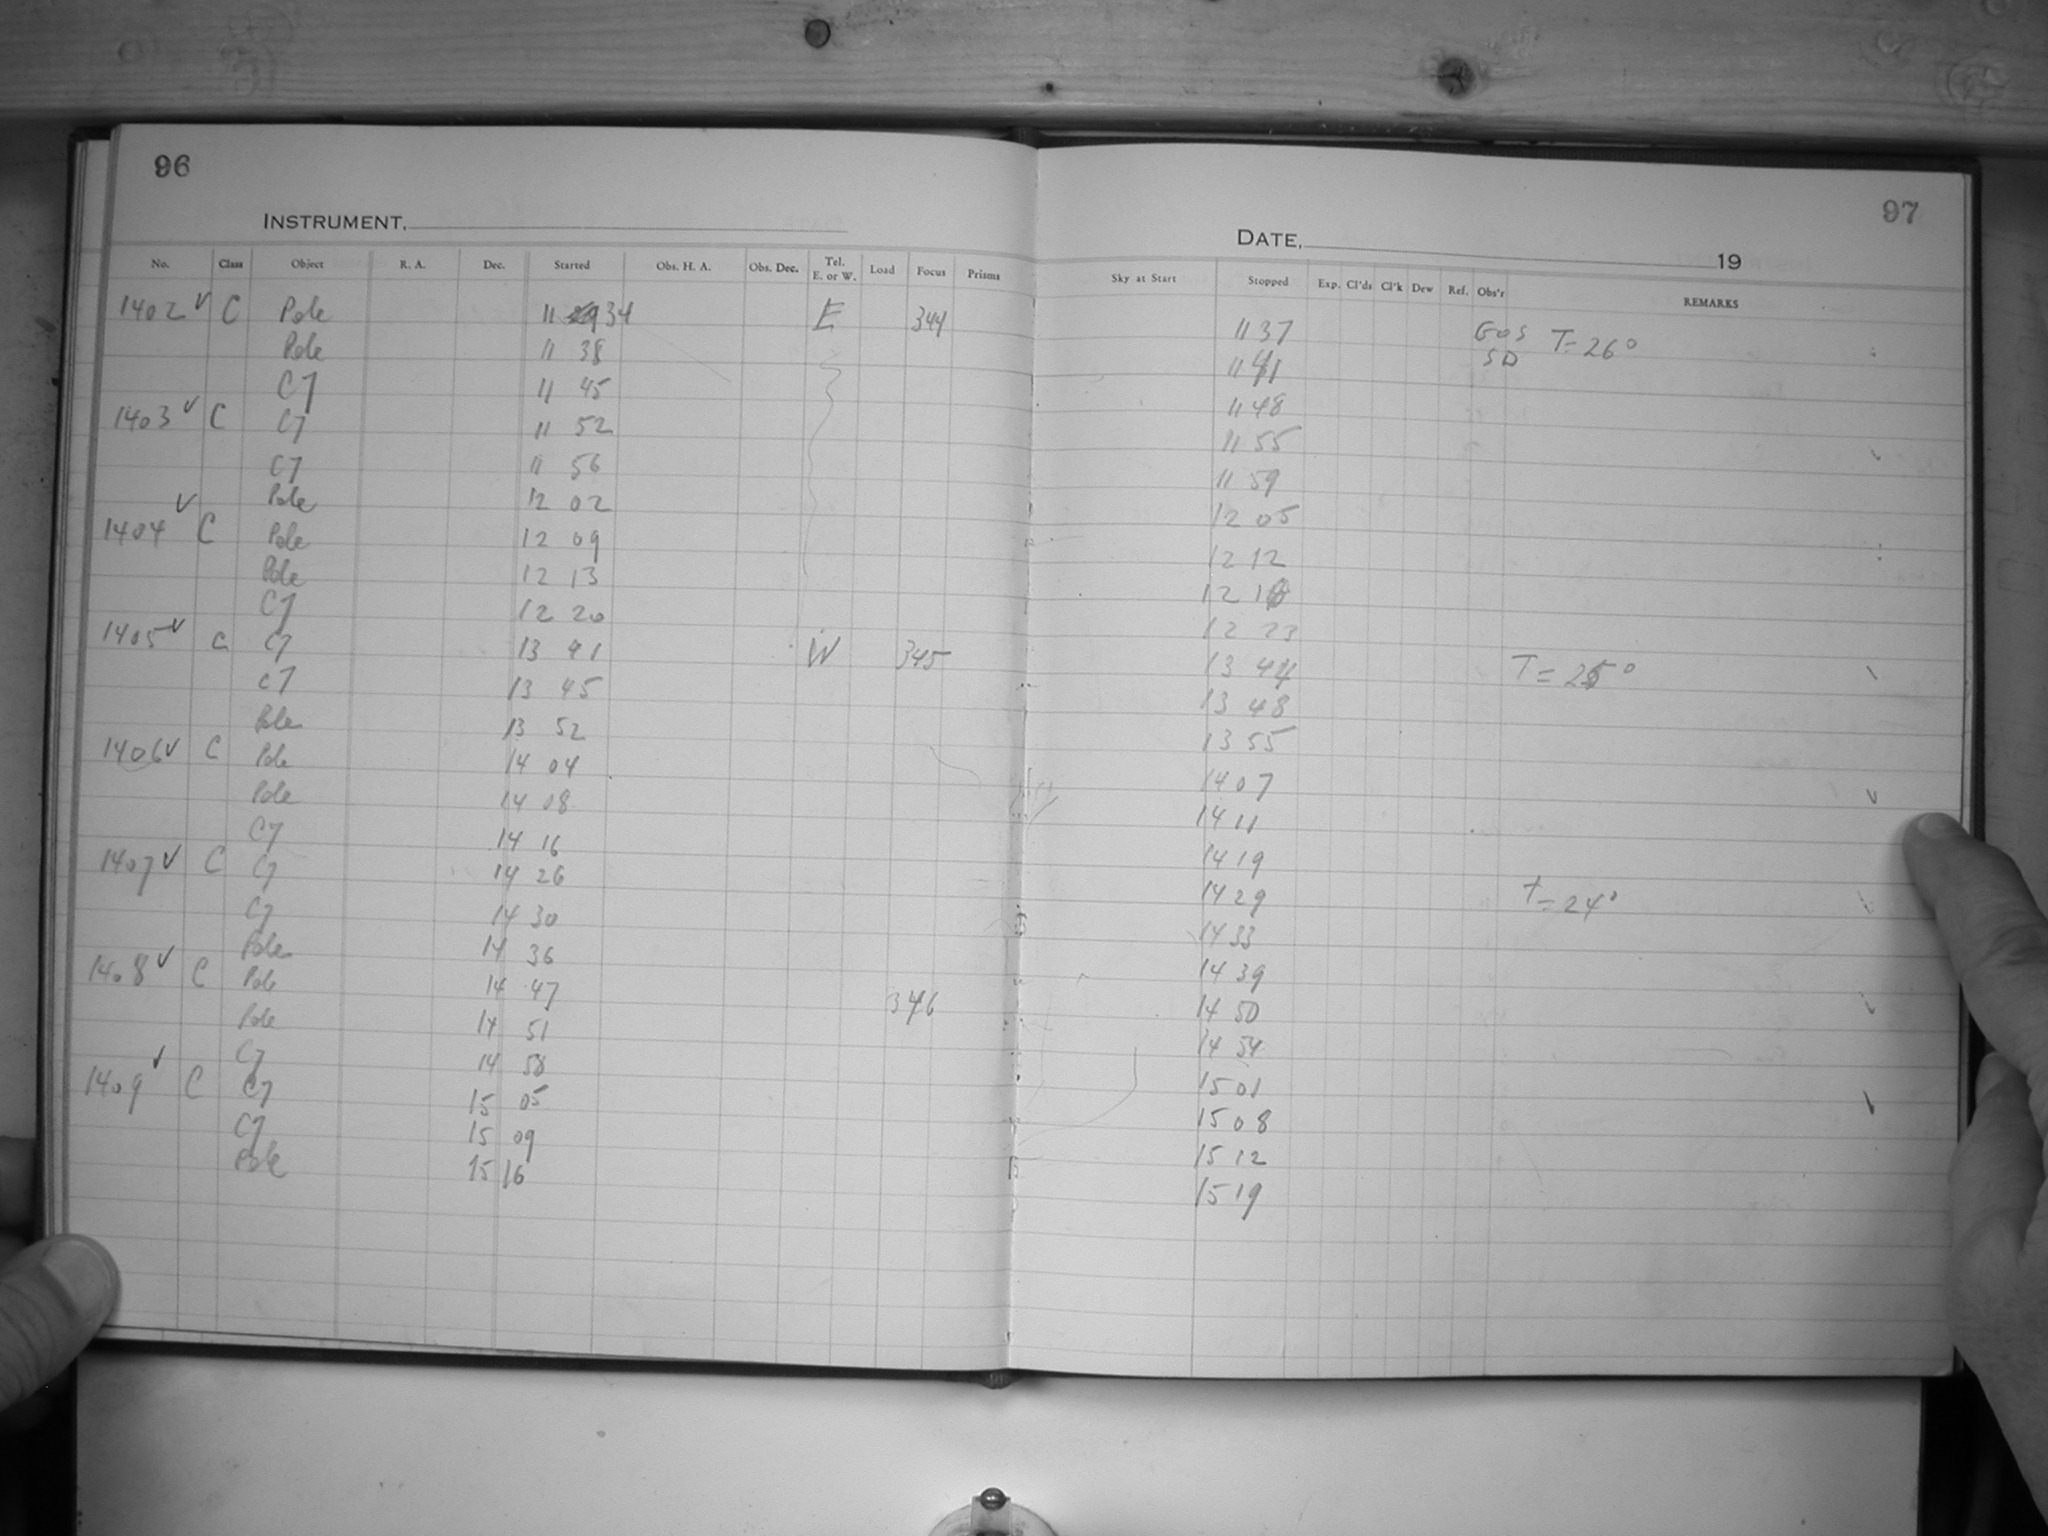 96
INSTRUMENT.
No. Class Object R. A. Dec. Started Obs. H. A. Obs. Dec. Tel. E. or W. Load Focus Prisms
1402 √ C Pole 11 34 E 344
Pole 11 38
C7 11 45
1403 √ C C7 11 52
C7 11 56
Pole 12 02
1404 √ C Pole 12 09
Pole 12 13
C7 12 20
1405 √ C C7 13 41 W 345
C7 13 45
Pole 13 52
1406 √ C Pole 14 04
Pole 14 08
C7 14 16
1407 √ C C7 14 26
C7 14 30
Pole 14 36
1408 √ C Pole 14 47 346
Pole 14 51
C7 14 58
1409 √ C C7 15 05
C7 15 09
Pole 15 16
97
DATE, 19
Sky at Start Stopped Exp. Cl'ds Cl'k Dew Ref. Obs'r REMARKS
11 37 GOS T=26°
11 41 SD
11 48
11 55
11 59
12 05
12 12
12 16
12 23
13 44 T=25°
13 48
13 55
14 07
14 11
14 19
14 29 t=24°
14 33
14 39
14 50
14 54
15 01
15 08
15 12
15 19